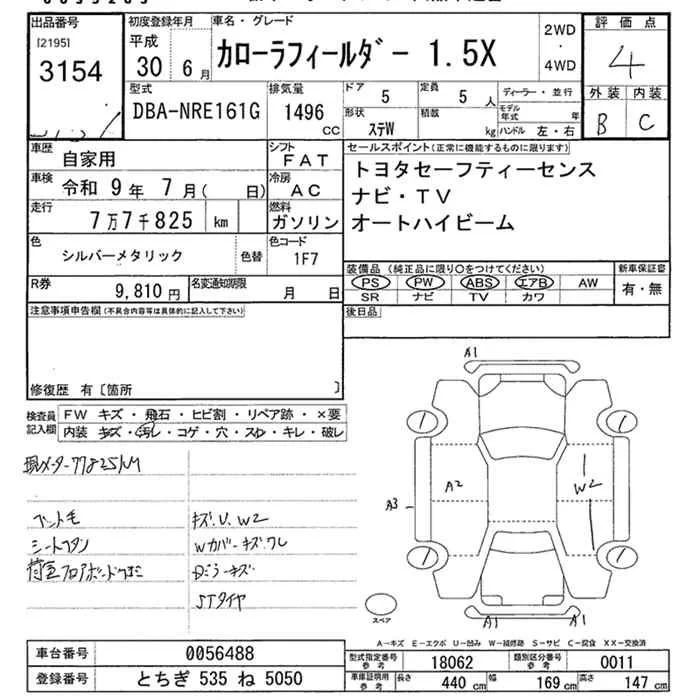 出品番号
[2195]
3154
初度登録年月
平成
30 6月
車名・グレード
カローラフィールダー 1.5X
2WD
・
4WD
評価点
4
外装 内装
B C
型式
DBA-NRE161G
排気量
1496
CC
ドア
5
形状
ステW
定員
5 人
積載
kg
ディーラー・並行
モデル年式 年
ハンドル 左・右
車歴
自家用
シフト
FAT
車検
令和 9年 7月( 日)
冷房
AC
走行
7万7千825 km
燃料
ガソリン
色
シルバーメタリック
色替
色コード
1F7
R券
9,810円
名変通知期限
月 日
セールスポイント(正常に機能するものに限ります)
トヨタセーフティーセンス
ナビ・TV
オートハイビーム
装備品(純正品に限り○をつけてください)
PS PW ABS エアB AW
SR ナビ TV カワ
新車保証書
有・無
後日品
注意事項申告欄(不具合内容等は具体的に記入して下さい)
修復歴 有〔箇所 〕
検査員記入欄
FW キズ・飛石・ヒビ割・リペア跡・×要
内装 キズ・汚レ・コゲ・穴・スレ・キレ・破レ
現メーター77825KM
シートフタン
キズ.U.W2
Wカバーキズ.ワレ
Dミラーキズ
STタイヤ
A1
A2
A3
W2
A1
A1
スペア
A-キズ E-エクボ U-凹み W-補修跡 S-サビ C-腐食 XX-交換済
車台番号
0056488
登録番号
とちぎ 535 ね 5050
型式指定番号
参考
18062
類別区分番号
参考
0011
車庫証明用
参考
長さ
440 cm
幅
169 cm
高さ
147 cm